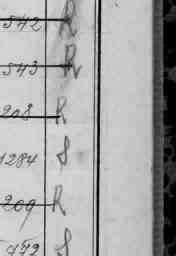 542 R
543 R
208 R
1284 S
209 R
972 S